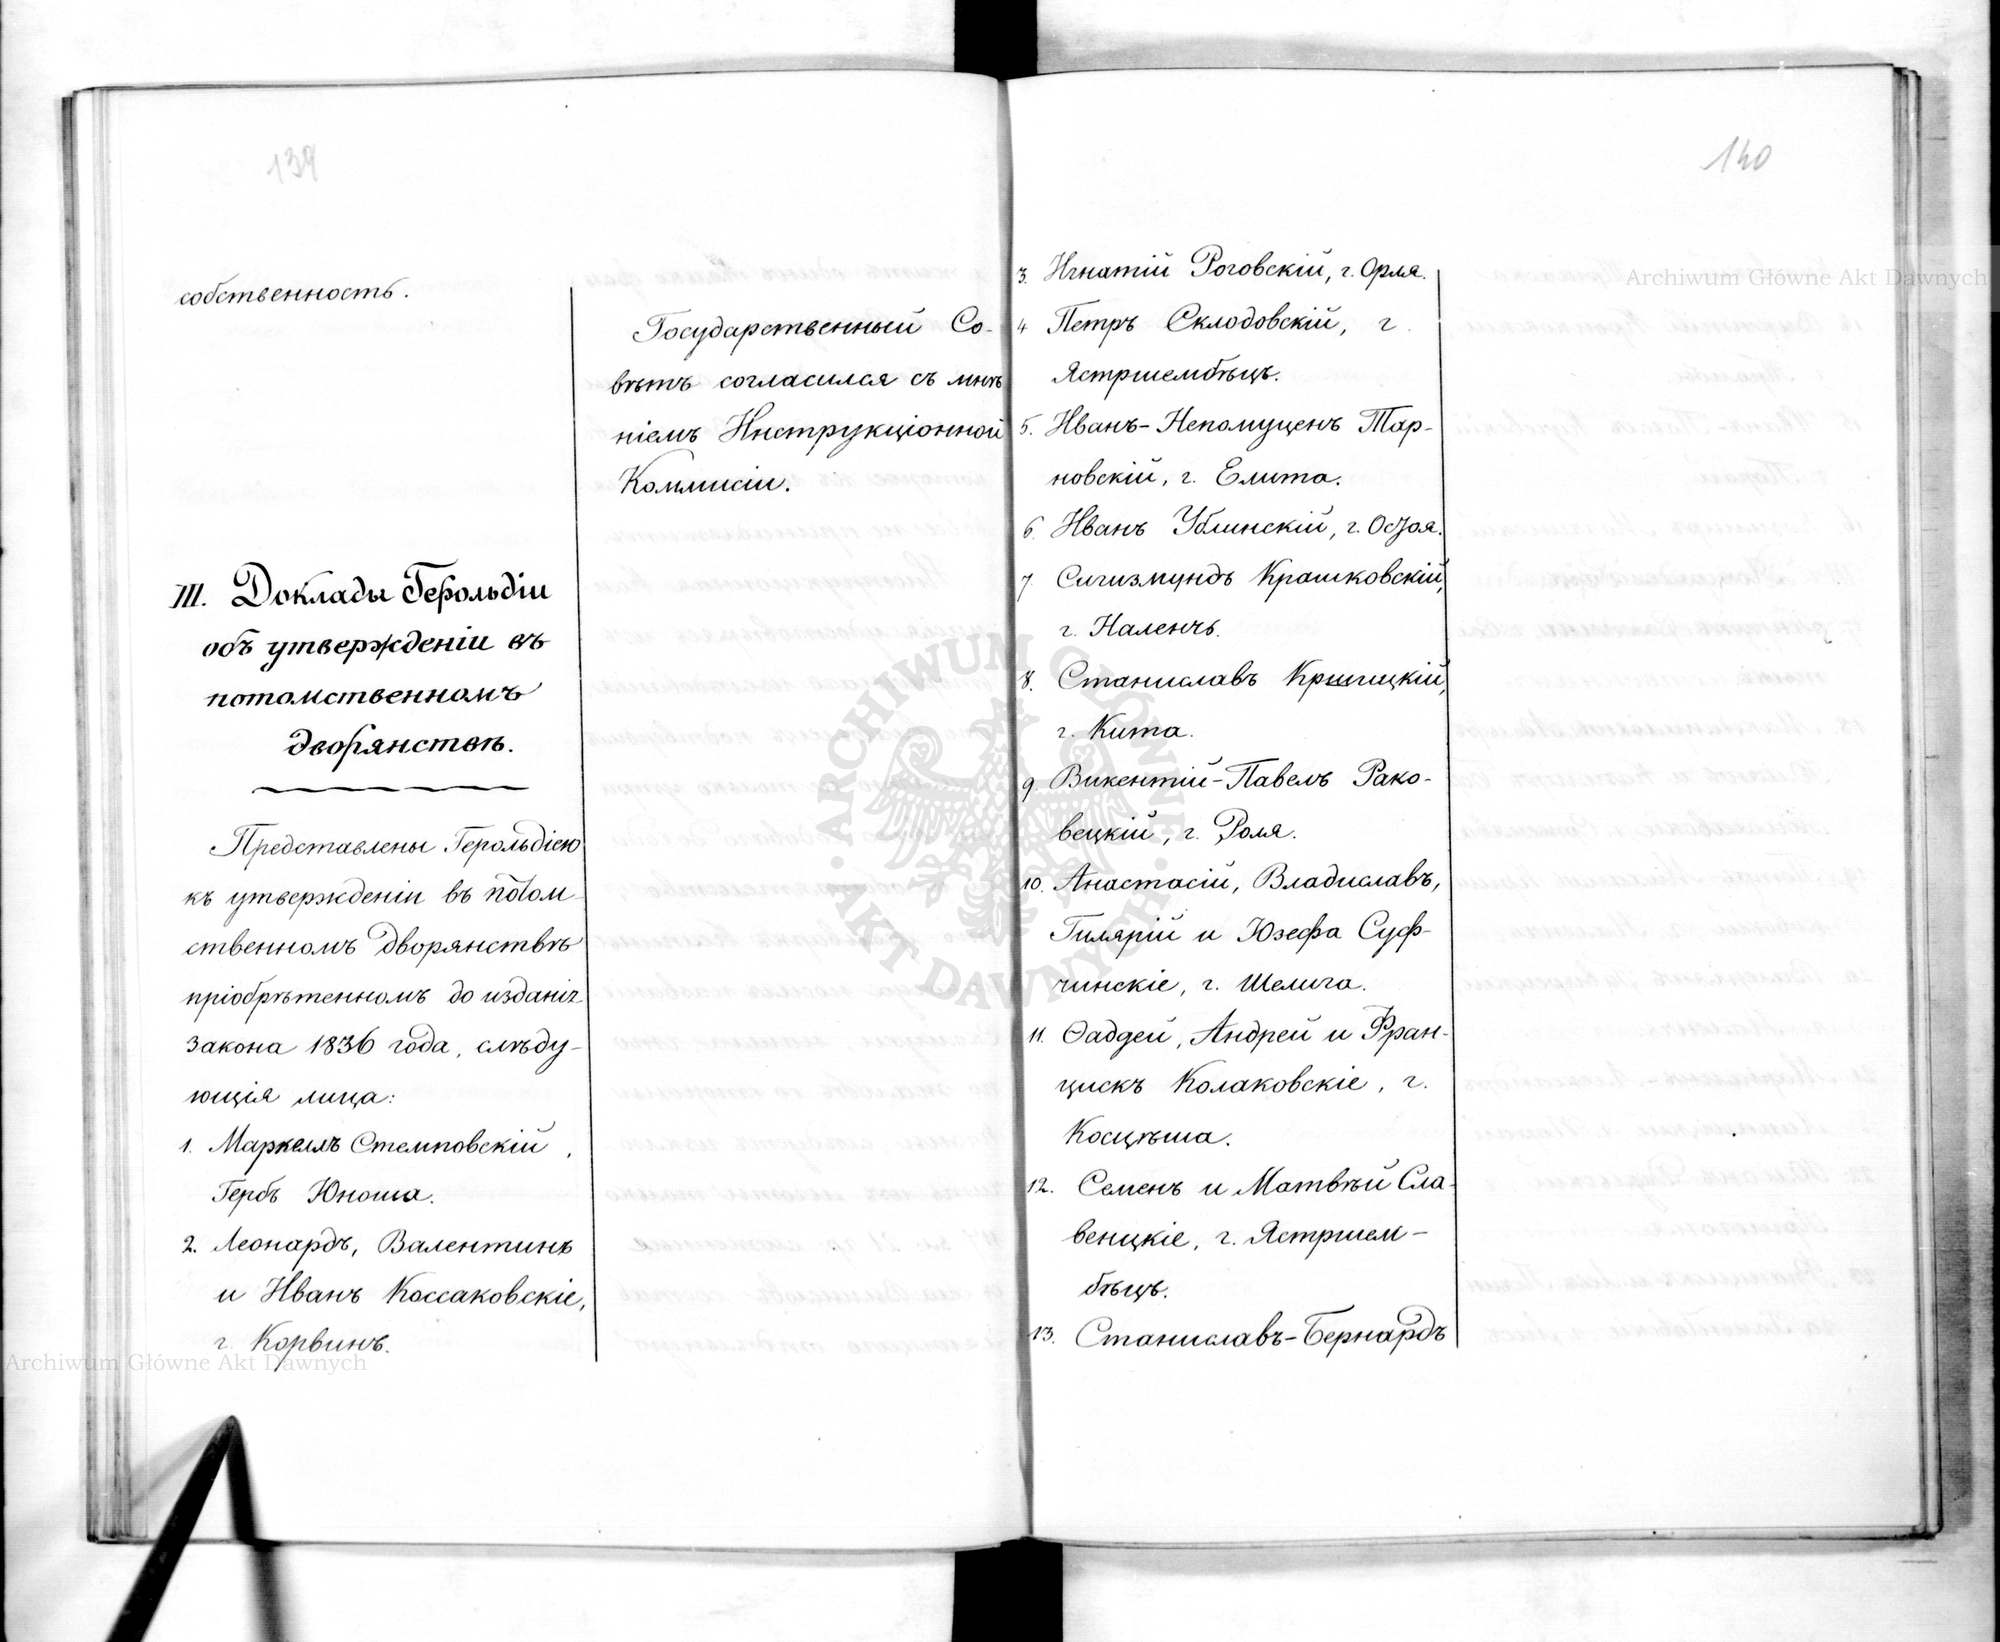 139
собственность.
Государственный Со-
вѣтъ согласился съ мнѣ
ніемъ Инструкціонной
Коммисіи.
III. Доклады Герольдіи
объ утвержденіи въ
потомственномъ
дворянствѣ.
Представлены Герольдіею
къ утвержденіи въ потом-
ственномъ дворянствѣ
пріобрѣтенномъ до изданія
закона 1836 года, слѣду-
ющія лица:
1. Маркеллъ Стемповскій,
Гербъ Юноша.
2. Леонардъ, Валентинъ
и Иванъ Коссаковскіе,
г. Корвинъ.
140
3. Игнатій Роговскій, г. Орля.
4 Петръ Склодовскій, г.
Ястршембѣцъ.
5. Иванъ-Непомуценъ Тар-
новскій, г. Елита.
6. Иванъ Ублинскій, г. Остоя.
7. Сигизмундъ Крашковскій,
г. Наленчъ.
8. Станиславъ Кршицкій,
г. Кита.
9. Викентій-Павелъ Рако-
вецкій, г. Роля.
10. Анастасій, Владиславъ,
Гилярій и Юзефа Суф-
чинскіе, г. Шелига.
11. Ѳаддей, Андрей и Фран-
цискъ Колаковскіе, г.
Косцѣша.
12. Семенъ и Матвѣй Сла-
венцкіе, г. Ястршем-
бѣцъ.
13. Станиславъ-Бернардъ
Archiwum Główne Akt Dawnych
Archiwum Główne Akt Dawnych
ARCHIWUM GŁÓWNE AKT DAWNYCH